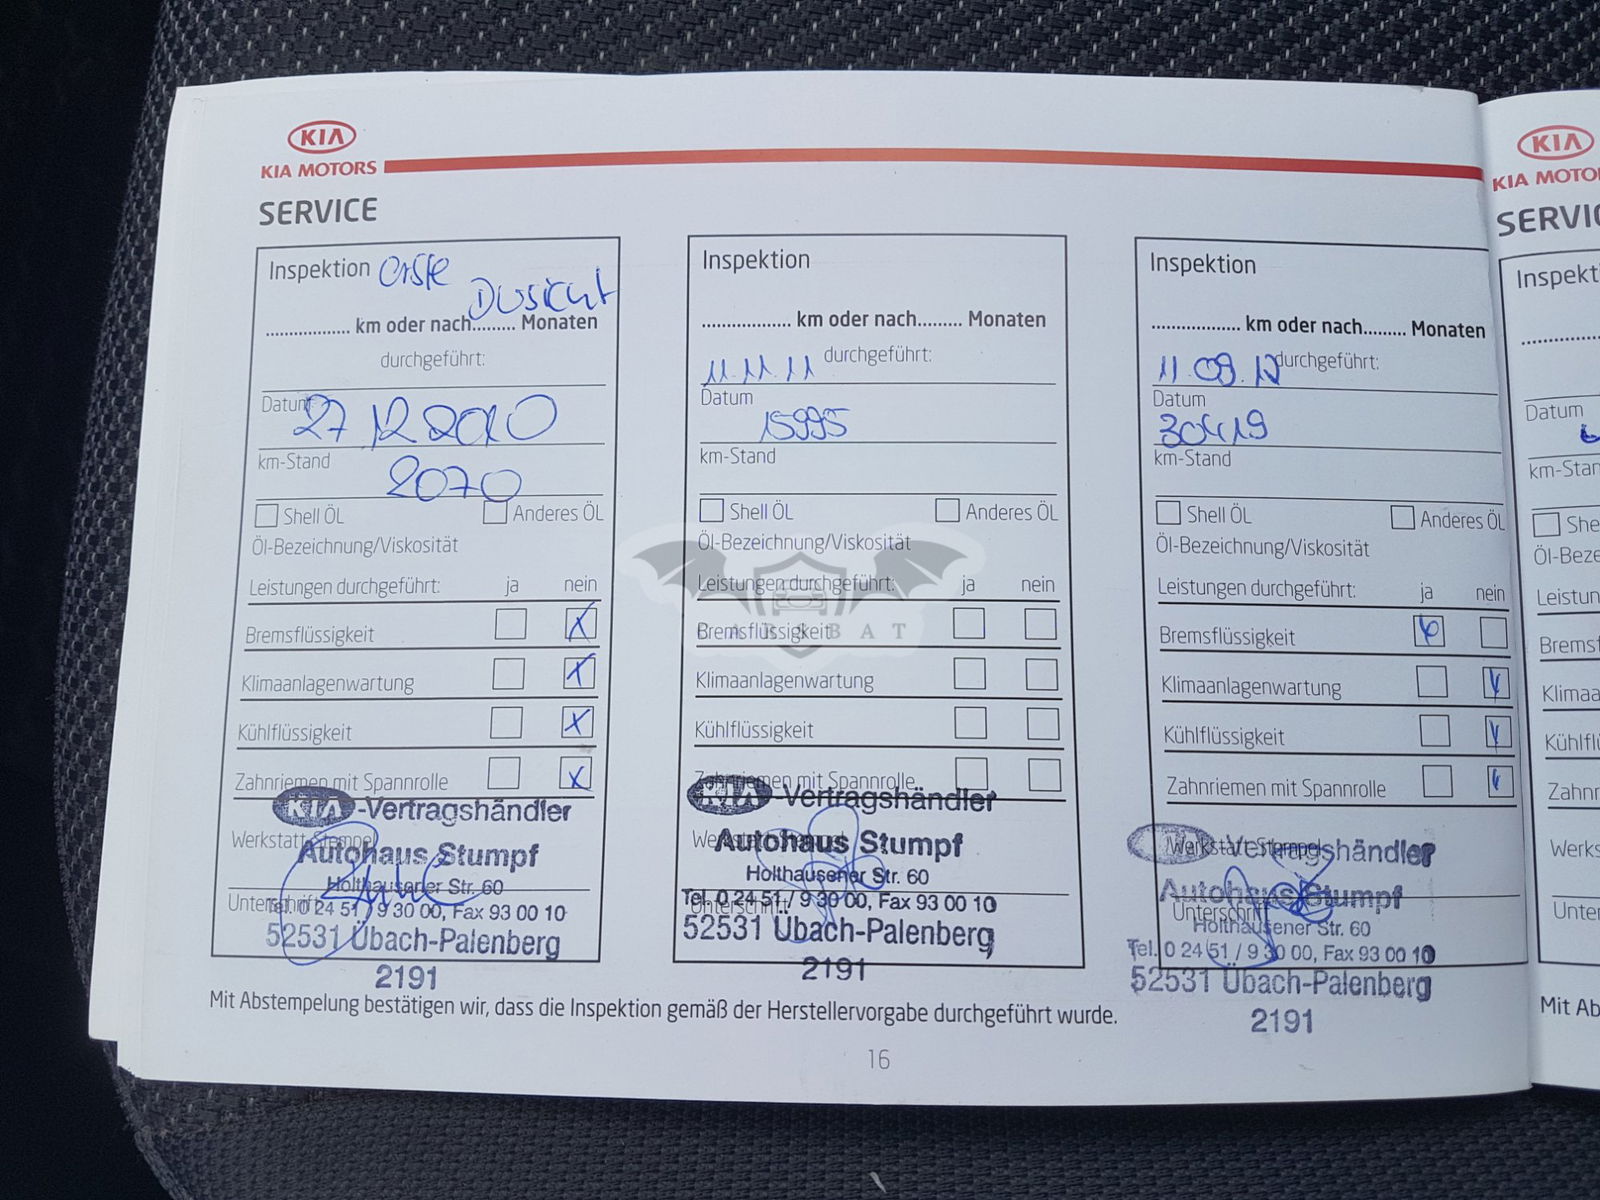 KIA
KIA MOTORS
SERVICE
Inspektion erste
Dusicht
.................. km oder nach......... Monaten
durchgeführt:
27 12 2010
Datum
2070
km-Stand
Shell ÖL Anderes ÖL
Öl-Bezeichnung/Viskosität
Leistungen durchgeführt: ja nein
Bremsflüssigkeit X
Klimaanlagenwartung X
Kühlflüssigkeit X
Zahnriemen mit Spannrolle X
KIA-Vertragshändler
Werkstatt-Stempel
Autohaus Stumpf
Holthausener Str. 60
Unterschrift
Tel. 0 24 51 / 9 30 00, Fax 93 00 10
52531 Übach-Palenberg
2191
Inspektion
.................. km oder nach......... Monaten
11.11.11 durchgeführt:
Datum
15995
km-Stand
Shell ÖL Anderes ÖL
Öl-Bezeichnung/Viskosität
Leistungen durchgeführt: ja nein
Bremsflüssigkeit
Klimaanlagenwartung
Kühlflüssigkeit
Zahnriemen mit Spannrolle
KIA-Vertragshändler
Autohaus Stumpf
Holthausener Str. 60
Tel. 0 24 51 / 9 30 00, Fax 93 00 10
Unterschrift
52531 Übach-Palenberg
2191
Inspektion
.................. km oder nach......... Monaten
11.09.12 durchgeführt:
Datum
30419
km-Stand
Shell ÖL Anderes ÖL
Öl-Bezeichnung/Viskosität
Leistungen durchgeführt: ja nein
Bremsflüssigkeit
Klimaanlagenwartung
Kühlflüssigkeit
Zahnriemen mit Spannrolle
Werkstatt-Stempel
Vertragshändler
Autohaus Stumpf
Unterschrift
Holthausener Str. 60
Tel. 0 24 51 / 9 30 00, Fax 93 00 10
52531 Übach-Palenberg
2191
Mit Abstempelung bestätigen wir, dass die Inspektion gemäß der Herstellervorgabe durchgeführt wurde.
16
KIA
KIA MOTO
SERVIC
Inspekt
Datum
km-Stan
She
Öl-Beze
Leistun
Bremsf
Klimaa
Kühlfl
Zahnr
Werks
Unter
Mit Ab